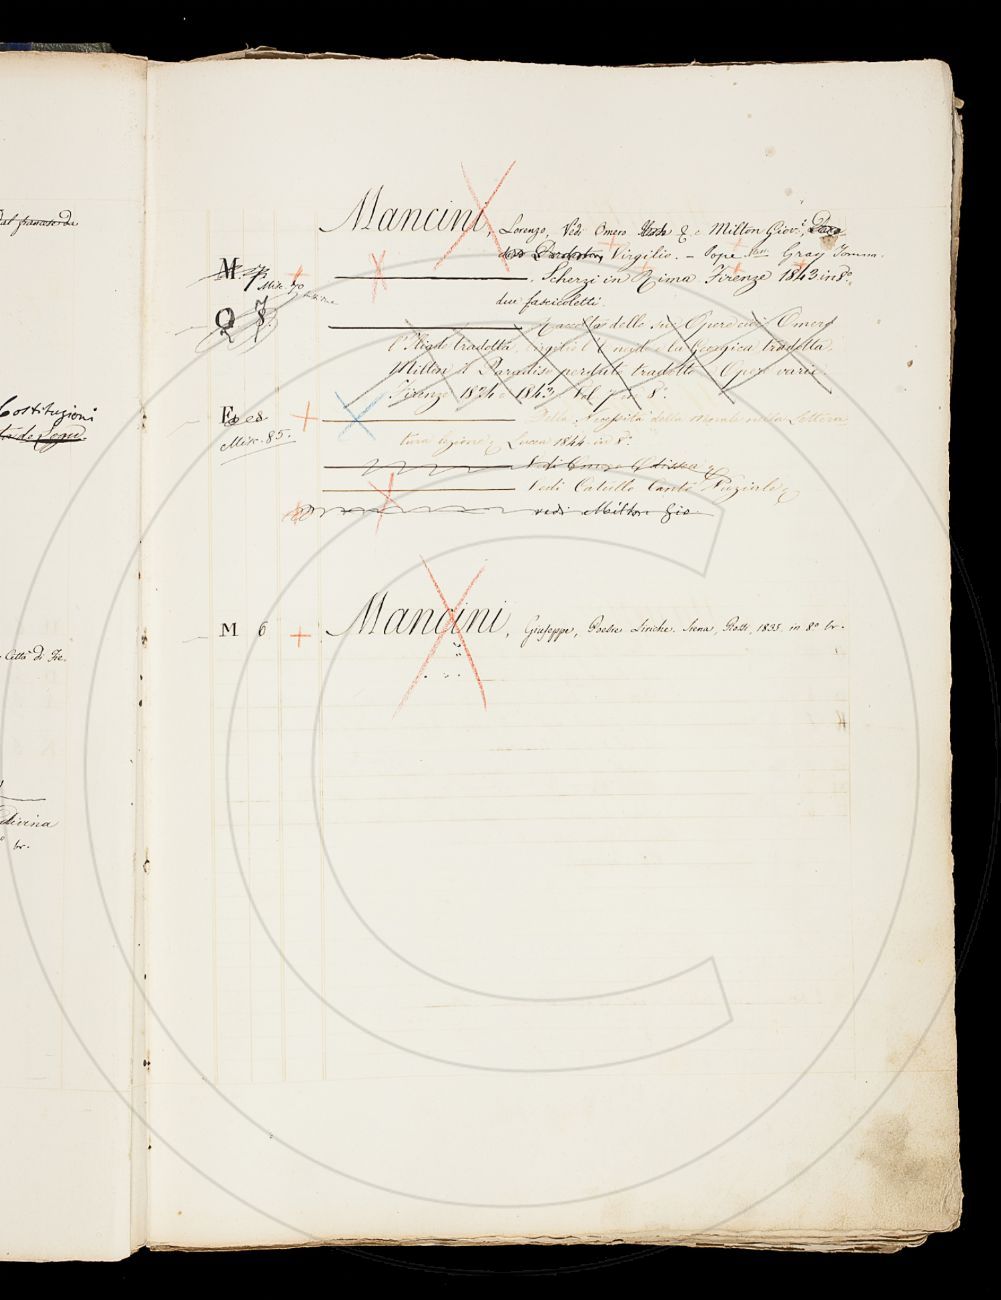 dal francese di
Mancini, Lorenzo, Vedi Omero & e Milton Giov.i,
Virgilio. – Pope Gray Tomm.
M. 7. Misc. 70 Scherzi in Rima Firenze 1843 in 8º.
due fascicoletti.
Q 7. Raccolta delle sue Opere cioè Omero
l'Iliade tradotta, Virgilio l'Eneide e la Georgica tradotta,
Milton il Paradiso perduto tradotto Opere varie
Firenze 1824 e 1843 Vol. 7 in 8º.
Costituzioni
E es Della Necessità della Morale nella Lettera
Misc. 85. tura lezione Lucca 1844 in 8º.
Vedi Omero Odissea
Vedi Catullo Canto Nuziale
vedi Milton Gio
M 6 Mancini, Giuseppe, Poesie Liriche. Siena, 1835. in 8º br.
Città di Fir.
divina
br.